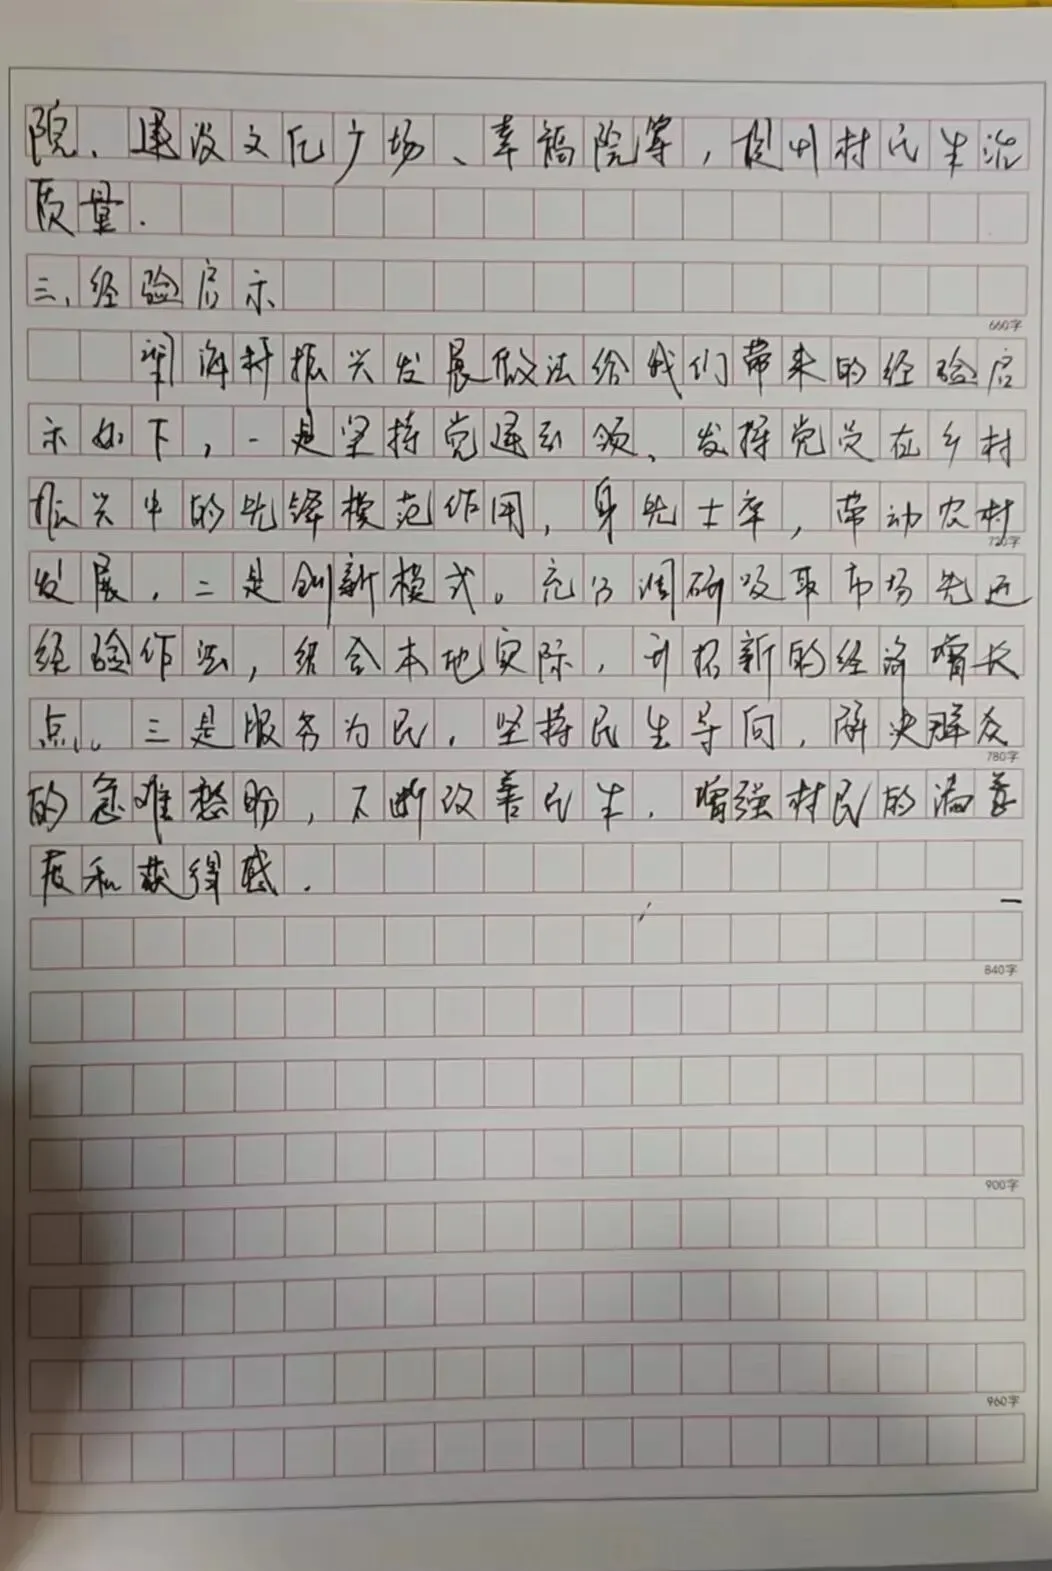 院、建设文化广场、幸福院等，提升村民生活
质量.
三、经验启示
660字
海村振兴发展做法给我们带来的经验启
示如下，一是坚持党建引领、发挥党员在乡村
振兴中的先锋模范作用，身先士卒，带动农村
720字
发展，二是创新模式。充分调研吸取市场先进
经验作法，结合本地实际，开拓新的经济增长
点。三是服务为民，坚持民生导向，解决群众
780字
的急难愁盼，不断改善民生，增强村民的满意
度和获得感.
840字
900字
960字